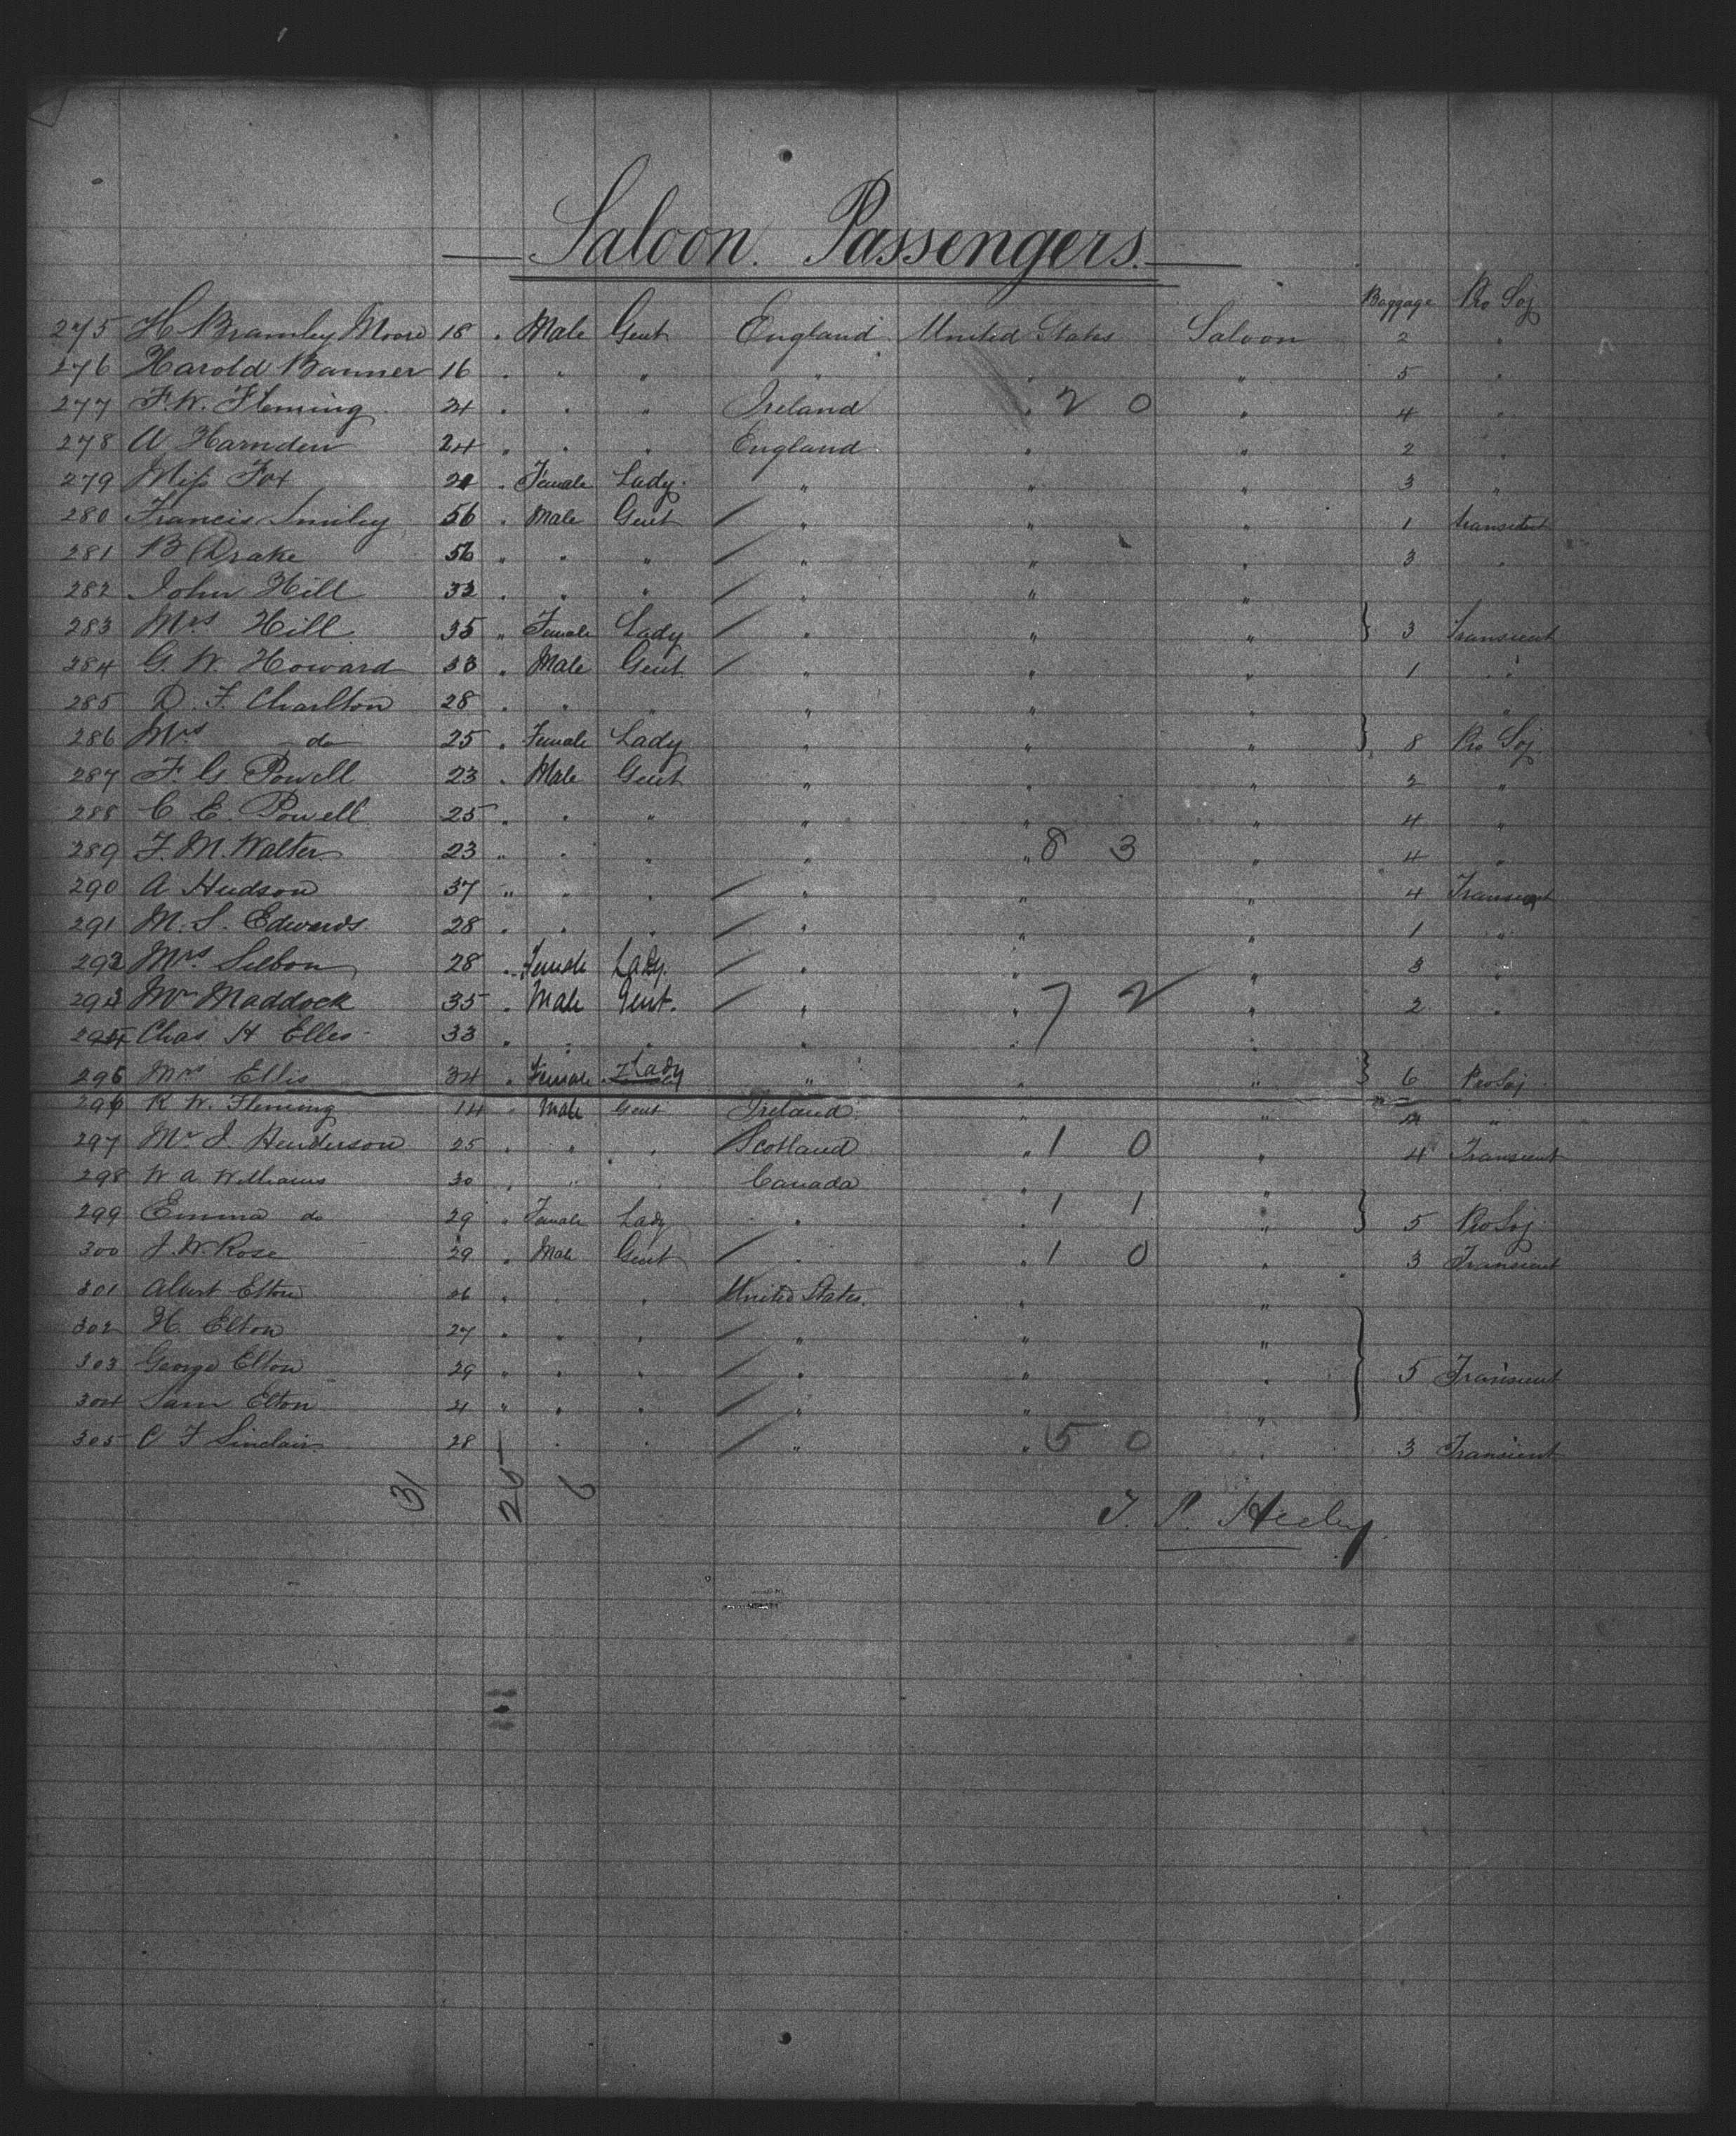 Saloon Passengers.
Baggage Pro Soj
275 H Bramley Moore 18 " Male Gent England United States Saloon 2 "
276 Harold Banner 16 " " " " " " 5 "
277 F. W. Fleming 21 " " " Ireland " 2 0 " 4 "
278 A Harnden 24 " " " England " " 2 "
279 Miss Fox 21 " Female Lady " " " 3 "
280 Francis Smiley 56 " Male Gent " " " 1 transient
281 B Drake 56 " " " " " " 3 "
282 John Hill 32 " " " " " "
283 Mrs Hill 35 " Female Lady " " " } 3 Transient
284 G. W. Howard 33 " Male Gent " " " 1 "
285 D. F. Charlton 28 " " " " " " "
286 Mrs do 25 " Female Lady " " " } 8 Pro Soj
287 F. G Powell 23 " Male Gent " " " 2 "
288 C E. Powell 25 " " " " " " 4 "
289 F. M. Walter 23 " " " " " 8 3 " 4 "
290 A Hudson 37 " " " " " " 4 Transient
291 M. S. Edwards 28 " " " " " " 1 "
292 Mrs 28 " Female Lady. " " " 3 "
293 Mr Maddock 35 " Male Gent. " " 7 2 " 2 "
294 Chas H Elles 33 " " " " " "
295 Mrs Ellis 34 " Female Lady " " " } 6 Pro Soj
296 R W. Fleming 14 " Male Gent Ireland " " "
297 Mr J. Henderson 25 " " " Scotland " 1 0 " 4 Transient
298 W A Williams 30 " " " Canada " "
299 Emma do 29 " Female Lady " " 1 1 " } 5 Pro Soj
300 J. W. Rose 29 " Male Gent " " 1 0 " 3 Transient
301 Albert Elton 26 " " " United States. " "
302 H. Elton 27 " " " " " "
303 George Elton 29 " " " " " " } 5 Transient
304 Sam Elton 21 " " " " " "
305 C F Sinclair 28 " " " " " 5 0 " 3 Transient
31 25 6